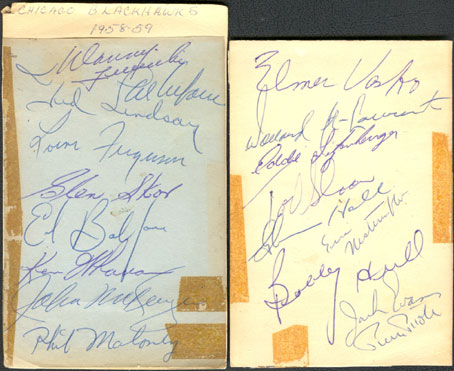 CHICAGO BLACKHAWKS
1958-59
Danny Lewicki
Ted Lindsay
Lorne Ferguson
Glen Skov
Ed
Ken Wharram
John McKenzie
Phil Maloney
Elmer Vasko
Eddie Litzenberger
Tod Sloan
Glenn Hall
Eric Nesterenko
Bobby Hull
Jack Evans
Pierre Pilote